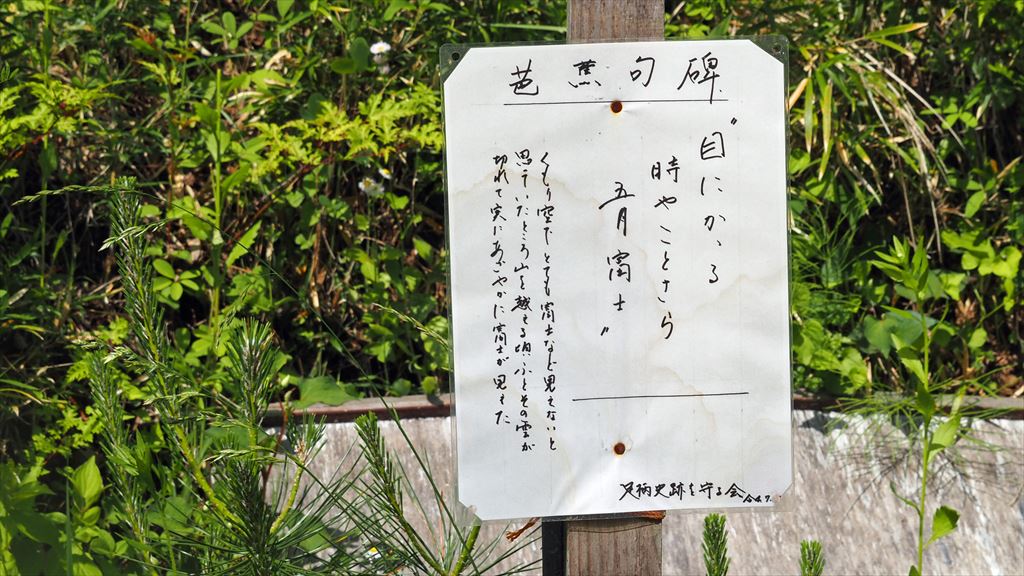 芭蕉句碑
"目にかゝる
時やことさら
五月富士"
くもり空でとても富士など見えないと
思っていたところ山を越える頃ふとその雲が
切れて実にあざやかに富士が見えた
足柄史跡を守る会